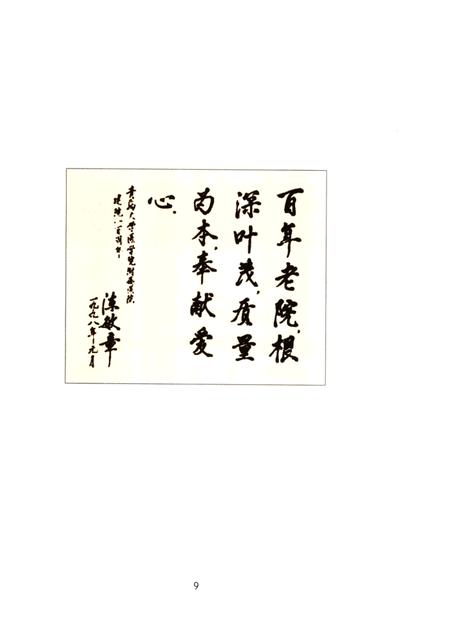 百年老院，根
深叶茂，质量
为本，奉献爱
心。
青岛大学医学院附属医院
建院一百周年
陈敏章
一九九八年元月
9